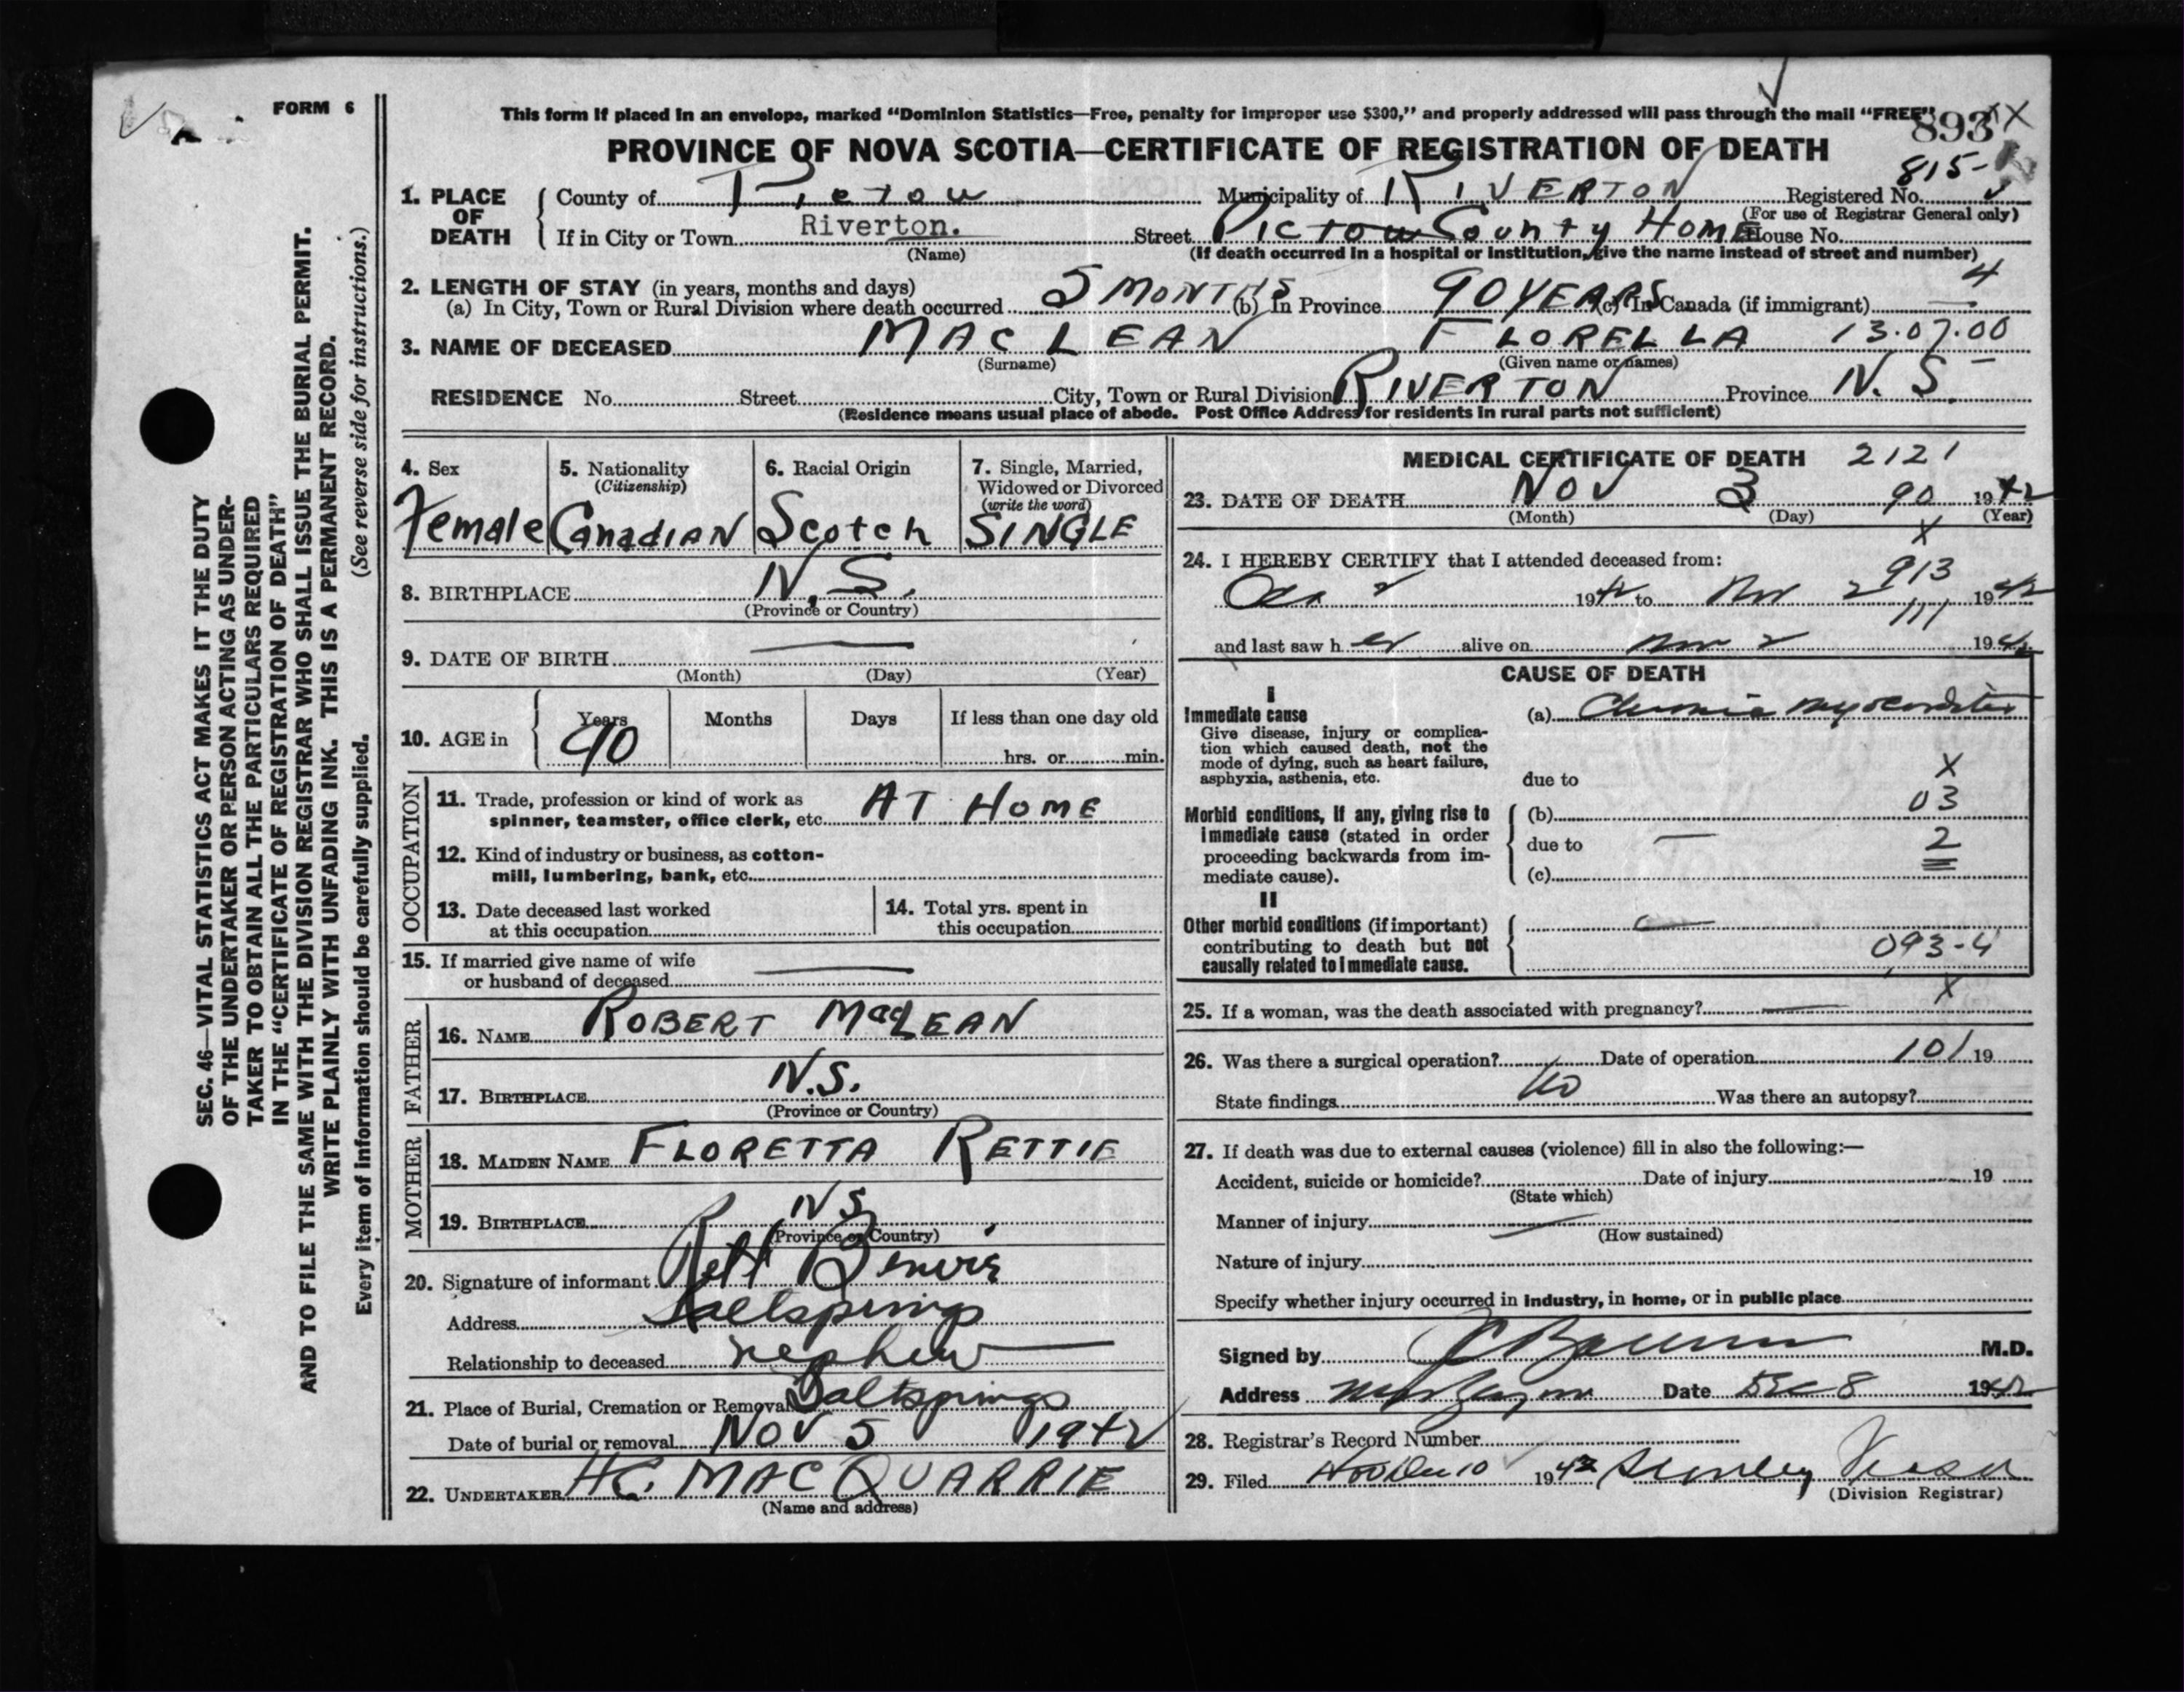 FORM 6
This form if placed in an envelope, marked "Dominion Statistics—Free, penalty for improper use $300," and properly addressed will pass through the mail "FREE"
893
XX
PROVINCE OF NOVA SCOTIA—CERTIFICATE OF REGISTRATION OF DEATH
815-
1. PLACE OF DEATH
County of Pictou Municipality of RIVERTON Registered No.
(For use of Registrar General only)
If in City or Town Riverton. Street Pictou County Home House No.
(Name) (If death occurred in a hospital or institution, give the name instead of street and number)
2. LENGTH OF STAY (in years, months and days) 4
(a) In City, Town or Rural Division where death occurred 5 MONTHS (b) In Province 90 YEARS (c) In Canada (if immigrant) —
3. NAME OF DECEASED MACLEAN FLORELLA 13.07.00
(Surname) (Given name or names)
RESIDENCE No. Street City, Town or Rural Division RIVERTON Province N.S.
(Residence means usual place of abode. Post Office Address for residents in rural parts not sufficient)
SEC. 46—VITAL STATISTICS ACT MAKES IT THE DUTY
OF THE UNDERTAKER OR PERSON ACTING AS UNDER-
TAKER TO OBTAIN ALL THE PARTICULARS REQUIRED
IN THE "CERTIFICATE OF REGISTRATION OF DEATH"
AND TO FILE THE SAME WITH THE DIVISION REGISTRAR WHO SHALL ISSUE THE BURIAL PERMIT.
WRITE PLAINLY WITH UNFADING INK. THIS IS A PERMANENT RECORD.
Every item of information should be carefully supplied. (See reverse side for instructions.)
4. Sex
Female
5. Nationality
(Citizenship)
Canadian
6. Racial Origin
Scotch
7. Single, Married,
Widowed or Divorced
(write the word)
SINGLE
8. BIRTHPLACE N.S.
(Province or Country)
9. DATE OF BIRTH —
(Month) (Day) (Year)
10. AGE in
Years Months Days If less than one day old
90 hrs. or min.
OCCUPATION
11. Trade, profession or kind of work as
spinner, teamster, office clerk, etc. AT HOME
12. Kind of industry or business, as cotton-
mill, lumbering, bank, etc.
13. Date deceased last worked
at this occupation
14. Total yrs. spent in
this occupation
15. If married give name of wife
or husband of deceased —
FATHER
16. NAME ROBERT MacLEAN
17. BIRTHPLACE N.S.
(Province or Country)
MOTHER
18. MAIDEN NAME FLORETTA RETTIE
19. BIRTHPLACE N.S.
(Province or Country)
20. Signature of informant Robt Benvie
Address Saltsprings
Relationship to deceased nephew
21. Place of Burial, Cremation or Removal Saltsprings
Date of burial or removal Nov 5 1942
22. UNDERTAKER H.C. MACQUARRIE
(Name and address)
MEDICAL CERTIFICATE OF DEATH 2121
23. DATE OF DEATH Nov 3 90 1942
(Month) (Day) (Year)
X
24. I HEREBY CERTIFY that I attended deceased from:
913
1942 to Nov 2 1942
111
and last saw her alive on Nov 2 1942
CAUSE OF DEATH
I
Immediate cause
Give disease, injury or complica-
tion which caused death, not the
mode of dying, such as heart failure,
asphyxia, asthenia, etc.
(a) Chronic myocarditis
due to
X
Morbid conditions, if any, giving rise to
immediate cause (stated in order
proceeding backwards from im-
mediate cause).
(b) 03
due to — 2
(c)
II
Other morbid conditions (if important)
contributing to death but not
causally related to immediate cause.
093-4
X
25. If a woman, was the death associated with pregnancy? —
26. Was there a surgical operation? Date of operation 101 19
State findings No Was there an autopsy?
27. If death was due to external causes (violence) fill in also the following:—
Accident, suicide or homicide? Date of injury 19
(State which)
Manner of injury —
(How sustained)
Nature of injury
Specify whether injury occurred in industry, in home, or in public place
Signed by M.D.
Address Date Dec 8 1942
28. Registrar's Record Number
29. Filed Dec 10 1942 Stanley Fraser
(Division Registrar)